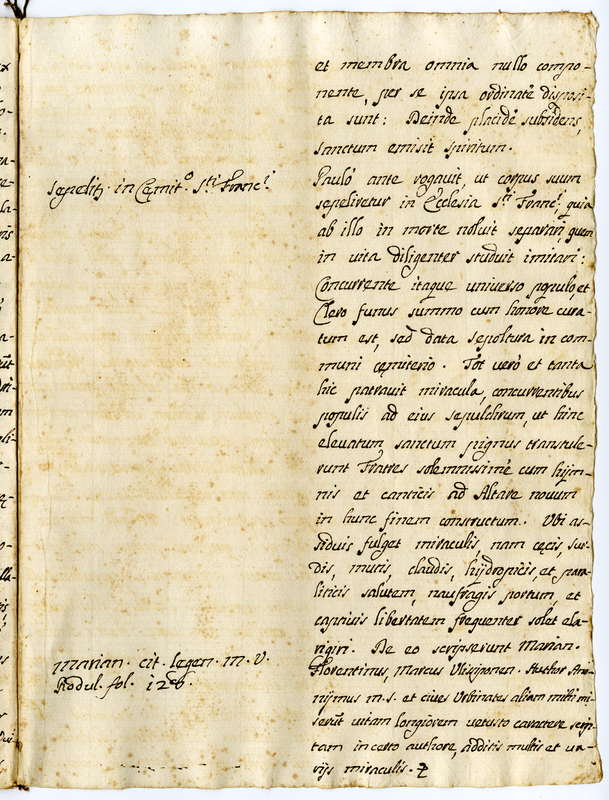 et membra omnia nullo compo-
nente, per se ipsa ordinatè disposi-
ta sunt: Deinde placidè subsidens,
sanctum emisit spiritum.
sepelit.r in Cęmit.o S.ti Franc.i
Paulò ante rogavit, ut corpus suum
sepeliretur in Ecclesia S.ti Franc.i, quia
ab illo in morte noluit separari, quem
in vita diligenter studuit imitari:
Concurrente itaque universo populo, et
Clero funus summo cum honore cura-
tum est, sed data sepoltura in com-
muni cęmiterio. Tot verò et tanta
hic patravit miracula, concurrentibus
populis ad eius sepulchrum, ut hinc
elevatum sanctum pignus transtule-
runt Fratres solemnissimè cum hijm-
nis et canticis ad Altare novum
in hunc finem constructum. Vbi as-
siduis fulget miraculis, nam cęcis, sur-
dis, mutis, claudis, hijdropicis, et para-
liticis salutem, naufragis portum, et
captivis libertatem frequenter solet ela-
rigiri. De eo scripserunt Marian.
Marian. cit. legen. m. V.
Rodul. fol. 126.
Florentinus, Marcus Vlixiponen. Author Ano-
nijmus m.s. et cives Vrbinates aliam mihi mi-
serūt vitam longiorem vetusto caractere scrip-
tam incerto authore, additis multis et va-
rijs miraculis.